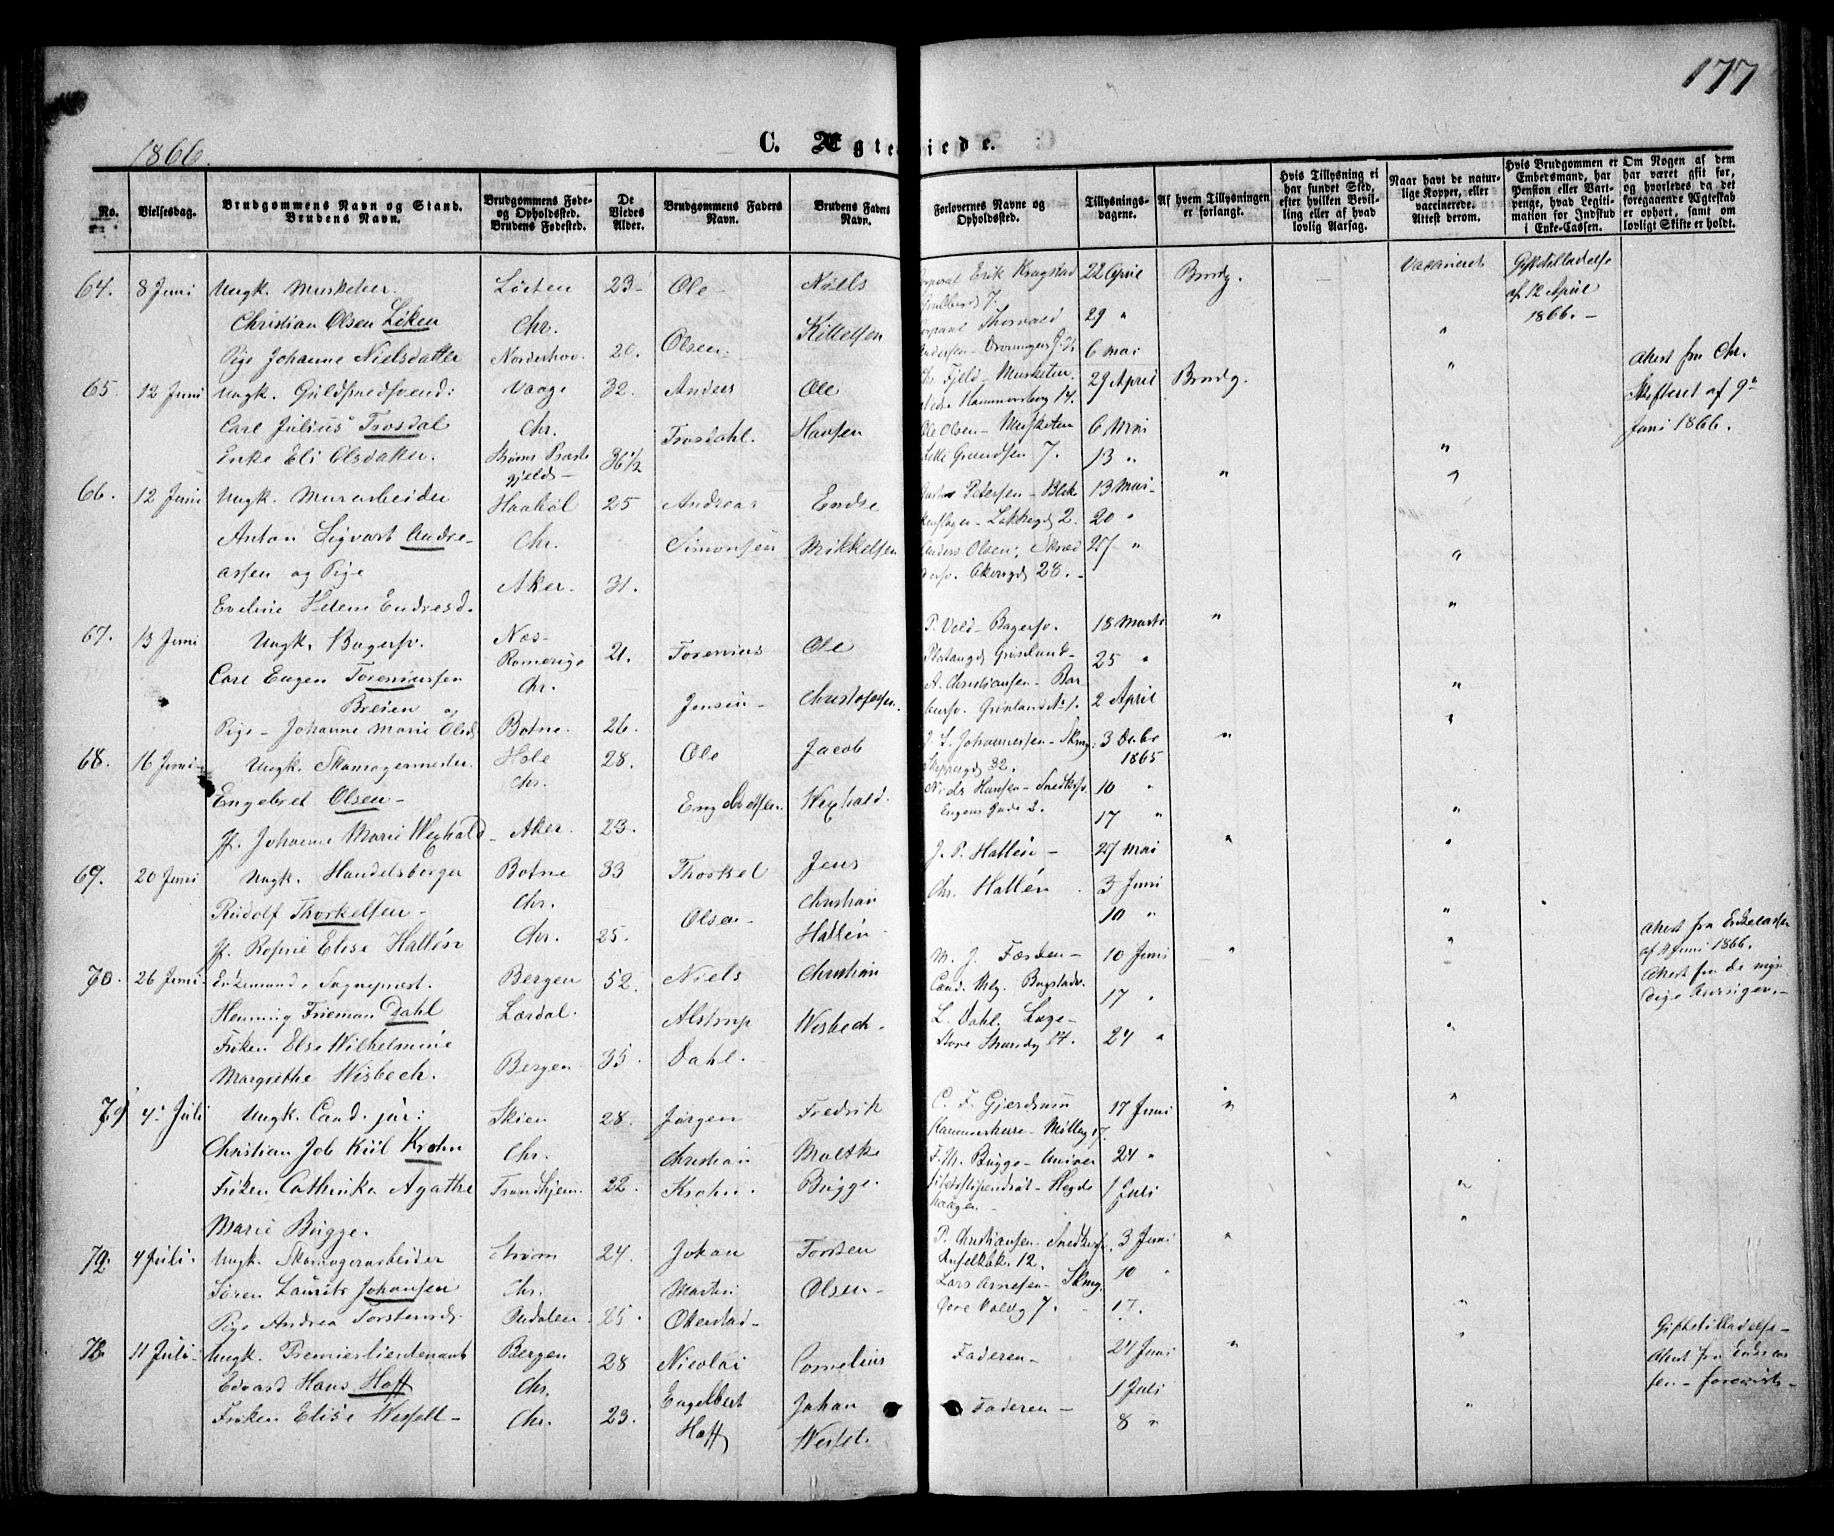 177
1866.
C. Ægteviede.
No.
Vielsesdag.
Brudgommens Navn og Stand.
Brudens Navn.
Brudgommens Føde-
og Opholdssted.
Brudens Fødested.
De
Viedes
Alder.
Brudgommens Faders
Navn.
Brudens Faders
Navn.
Forlovernes Navne og
Opholdssted.
Tillysnings-
dagene.
Af hvem Tillysningen
er forlangt.
Hvis Tillysning ei
har fundet Sted,
efter hvilken Bevil-
ling eller af hvad
lovlig Aarsag.
Naar havt de natur-
lige Kopper, eller
vaccinerede.
Attest derom.
Hvis Brudgommen er
Embedsmand, har
Pension eller Vart-
penge, hvad Legiti-
mation for Indskud
i Enke-Cassen.
Om Nogen af dem
har været gift før,
og hvorledes da det
foregaaende Ægteskab
er ophørt, samt om
lovligt Skifte er holdt.
64. 8 Juni Ungk. Musketeer. Løiten 23 Ole Niels Erik Krogstad 22 April Brudg. Vaccineret Giftetilladelse
af 12 April
1866. –
Christian Olsen Løken Chr. Olsen Kittelsen Thorvald 29 "
Pige Johanne Nielsdatter Norderhov 20. 6 Mai "
65. 12 Juni Ungk. Guldsmedsvend: Vaage 32. Anders Ole Fjeld Musketeer 29 April Brudg. " Attest fra Chr.
Skifteret af 9de
Juni 1866.
Carl Julius Trosdal Chr. Trosdahl. Hansen Ole Olsen – Musketeer 6 Mai
Enke Eli Olsdatter. 36½ 7. 13 " "
66. 12 Juni Ungk. Murarbeider Haabøl 25 Andreas Endre Petersen – Blik 13 Mai " "
Anton Sigvart Andre- Chr. Simonsen Mikkelsen 2. 20 "
assen og Pige Anders Olsen, 27 " "
Eveline Helene Endresd. Aker. 31. 28. – "
67. 13 Juni Ungk. Bagersv. Næs- 21. Torenius Ole P. Vold – Bagersv. 18 Marts "
Romerige Grønland – 25 "
Carl Eugen Toreniussen Chr. Jensen – Christofersen. A. Christiansen – 2 April "
Breien og
Pige – Johanne Marie Olsd. Botne. 26. Grønland No 1. "
68. 16 Juni – Ungk. Skomagermester Hole 28. Ole Jacob Johannessen – Skmg. 3 Decbr "
1865
Engebret Olsen – Chr. Engebretsen. Wexhald. Niels Hansen – Snedkersv. 10 "
Jf. Johanne Marie Wexhald – Aker. 23. 17 " "
69. 20 Juni Ungk. Handelsborger Botne 33 Thorkel Jens J. P. Hallén – 27 Mai " "
Rudolf Thorkelsen – Chr. Olsen Christian Chr. Hallén . 3 Juni
Jf. Elise Hallén Chr. 25. Hallén – 10 " "
70. 26 Juni – Enkemand, Sognepræst. Bergen 52. Niels Christian 10 Juni " " Attest fra Enkecassen
af Juni 1866.
Attest fra de myn
dige Arvinger. –
Henning Frieman Dahl Lærdal. Alstrup Wesbech – 17 "
Frøken Else Wilhelmine Dahl. L. Dahl. Læge – 24 " "
Margrethe Wisbech. Bergen 35
71 4. Juli Ungk. Cand. jur: Skien 28. Jørgen Fredrik C. F. Gjerdrum 17 Juni " "
Christian Job Kiil Krohn Chr. Christian Moltke F. M. Bugge – Univer 24 "
Frøken Cathrinka Agathe Trondhjem. 22. Krohn. Bugge. sitetsstipendiat – Hegde 1 Juli "
haugen –
Marie Bugge. "
72. 4 Juli. Ungk. Skomagerarbeider Strøm 24. Johan Torsten P. Christiansen – Snedkersv. 3 Juni "
12.
Søren Laurits Johansen Chr. Martin Olsen – Lars Arnesen – Skmg. 10 "
Pige Andrea Torstensd. Oudalen. 25. Okerstad – 7. – 17. "
73. 11 Juli. Ungk. Premierlieutenant Bergen 28 Nicolai Cornelius Faderen – 24 Juni " " Giftetilladelse –
Attest fra Enkecas
sen – forevist –
Edvard Hans Hoff Chr. Engelbert Johan 1 Juli
Frøken Elise Chr. 23. Hoff Faderen – 8 " "